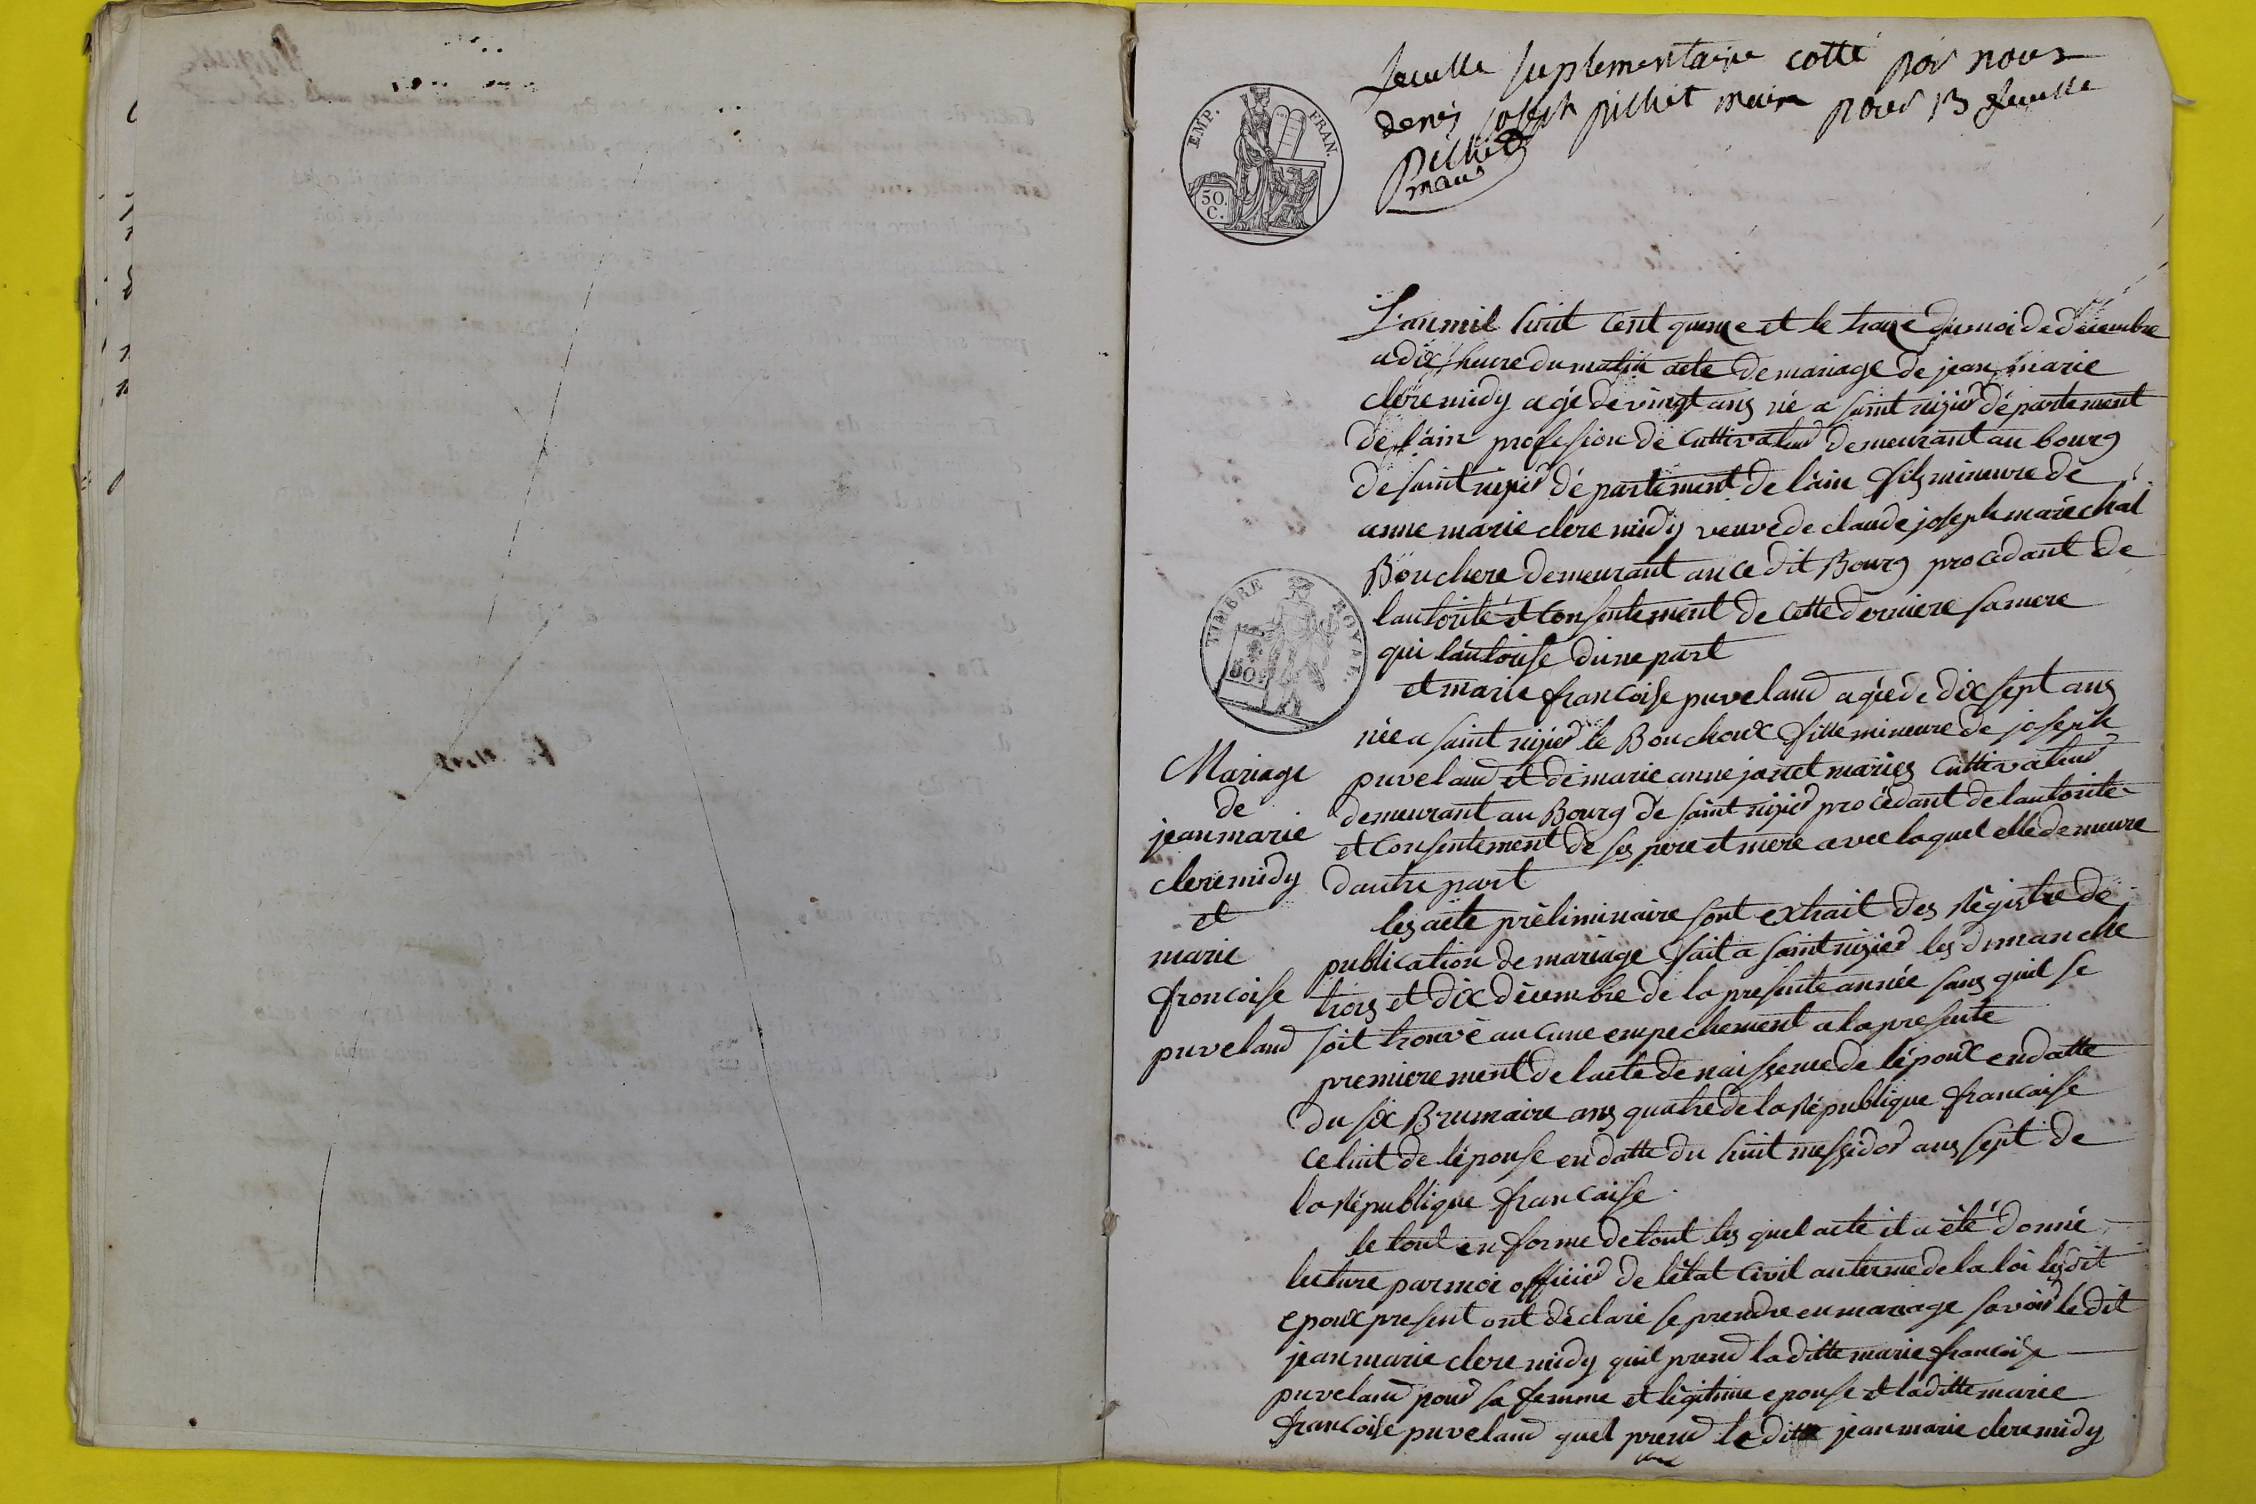 feuille suplementaire cotté par nous
denis joseph pilliet maire pour 13 feuille
pilliet
maire
EMP. FRAN.
50.
C.
L'an mil huit cent quinze et le traize du moi de decembre
a dix heure du matin acte de mariage de jean marie
clere midy agé de vingt ans né a saint nizier département
de l'ain profession de cultivateur demeurant au bourg
de saint nizier département de l'ain fils mineure de
anne marie clere midy veuve de claude joseph maréchal
Bouchere demeurant au ce dit Bourg procedant de
lautorité et Consentement de cette derniere sa mere
qui lautorise dune part
TIMBRE ROYAL
50
et marie francoise puveland agée de dix sept ans
née a saint nizier le Bouchoux fille mineure de joseph
puveland et de marie anne janet mariés Cultivateur
demeurant au Bourg de saint nizier procédant de lautorité
et Consentement de ses pere et mere avec laquel elle demeure
dautre part
Mariage
de
jean marie
clere midy
et
marie
francoise
puveland
les acte préliminaire sont extrait des Régistre de
publication de mariage fait a saint nizier les dimanche
trois et dix décembre de la présente année sans quil se
soit trouvé aucune empechement a la presente
premierement de lacte de naissence de lépoux en datte
du six Brumaire ans quatre de la République francaise
Celuit de lépouse en datte du huit messidor ans sept de
la République francaise.
le tout en forme de tout les quel acte il a été donné
lecture par moi officier de létat Civil au terme de la loi lesdit
epoux present ont déclaré se prendre en mariage savoir ledit
jean marie clere midy quil prend la ditte marie francoise
puveland pour sa femme et légitime epouse et laditte marie
francoise puveland quel prend le dit jean marie clere midy